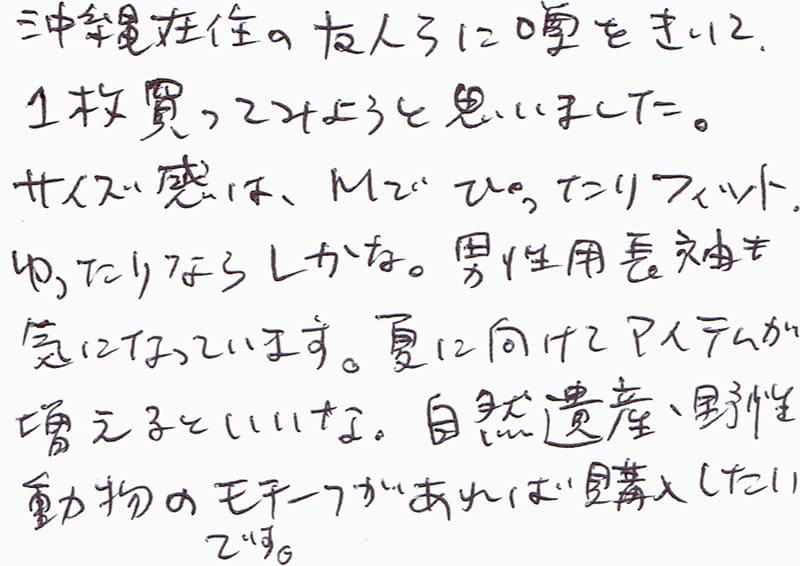 沖縄在住の友人らに噂をきいて、
1枚買ってみようと思いました。
サイズ感は、Mでぴったりフィット、
ゆったりならLかな。男性用長袖も
気になっています。夏に向けてアイテムが
増えるといいな。自然遺産、野性
動物のモチーフがあれば購入したい
です。